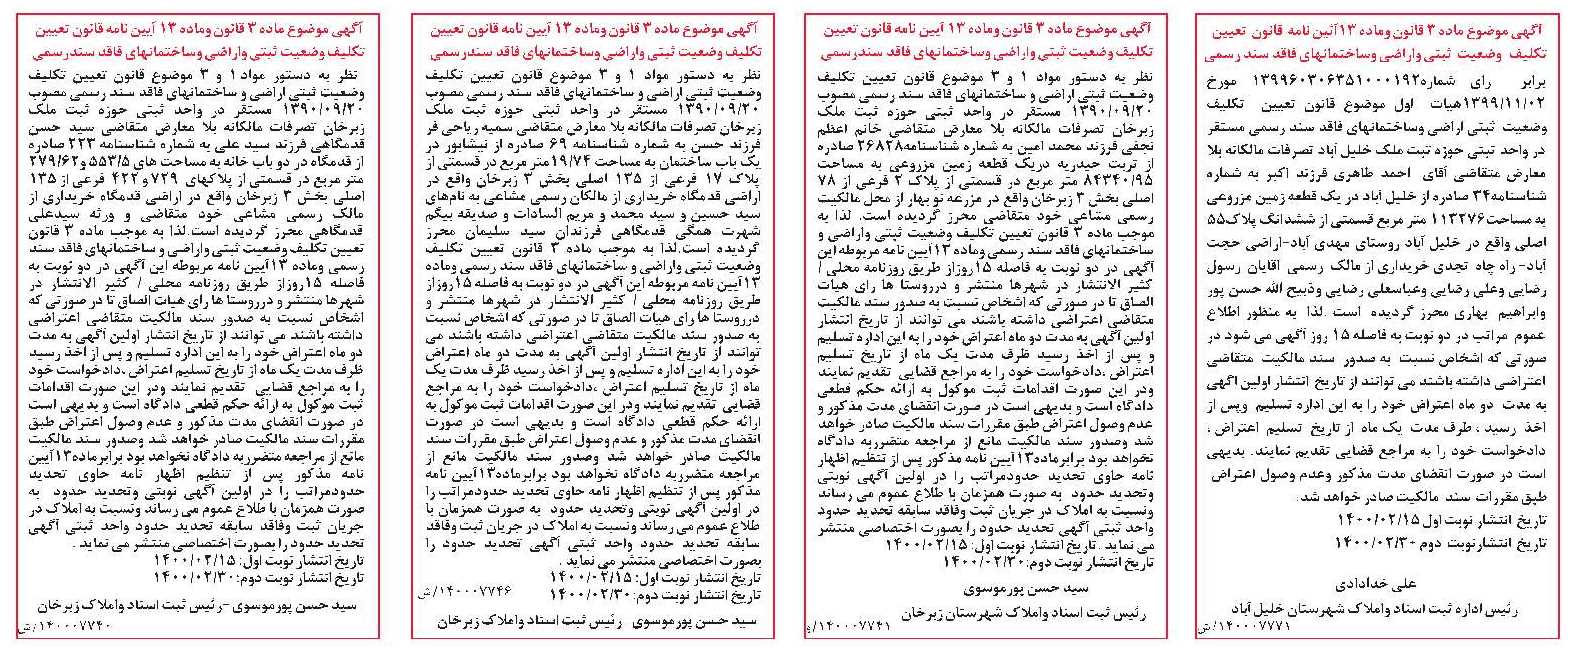 آگهی موضوع ماده ۳ قانون وماده ۱۳ آئین نامه قانون تعیین
تکلیف وضعیت ثبتی واراضی وساختمانهای فاقد سند رسمی
برابر رای شماره۱۳۹۹۶۰۳۰۶۳۵۱۰۰۰۱۹۲ مورخ
۱۳۹۹/۱۱/۰۲هیات اول موضوع قانون تعیین تکلیف
وضعیت ثبتی اراضی وساختمانهای فاقد سند رسمی مستقر
در واحد ثبتی حوزه ثبت ملک خلیل آباد تصرفات مالکانه بلا
معارض متقاضی آقای احمد طاهری فرزند اکبر به شماره
شناسنامه۳۴ صادره از خلیل آباد در یک قطعه زمین مزروعی
به مساحت۱۱۳۲۷۶ متر مربع قسمتی از ششدانگ پلاک۵۵
اصلی واقع در خلیل آباد روستای مهدی آباد-اراضی حجت
آباد- راه چاه تجدی خریداری از مالک رسمی آقایان رسول
رضایی وعلی رضایی وعباسعلی رضایی وذبیح الله حسن پور
وابراهیم بهاری محرز گردیده است .لذا به منظور اطلاع
عموم مراتب در دو نوبت به فاصله ۱۵ روز آگهی می شود در
صورتی که اشخاص نسبت به صدور سند مالکیت متقاضی
اعتراضی داشته باشند می توانند از تاریخ انتشار اولین آگهی
به مدت دو ماه اعتراض خود را به این اداره تسلیم وپس از
اخذ رسید ، ظرف مدت یک ماه از تاریخ تسلیم اعتراض ،
دادخواست خود را به مراجع قضایی تقدیم نمایند. بدیهی
است در صورت انقضای مدت مذکور وعدم وصول اعتراض
طبق مقررات سند مالکیت صادر خواهد شد.
تاریخ انتشار نوبت اول ۱۴۰۰/۰۲/۱۵
تاریخ انتشارنوبت دوم ۱۴۰۰/۰۲/۳۰
علی خدادادی
رئیس اداره ثبت اسناد واملاک شهرستان خلیل آباد
۱۴۰۰۰۷۷۷۱/ش
آگهی موضوع ماده ۳ قانون وماده ۱۳ آیین نامه قانون تعیین
تکلیف وضعیت ثبتی واراضی وساختمانهای فاقد سندرسمی
نظر به دستور مواد ۱ و ۳ موضوع قانون تعیین تکلیف
وضعیت ثبتی اراضی و ساختمانهای فاقد سند رسمی مصوب
۱۳۹۰/۰۹/۲۰ مستقر در واحد ثبتی حوزه ثبت ملک
زبرخان تصرفات مالکانه بلا معارض متقاضی خانم اعظم
نجفی فرزند محمد امین به شماره شناسنامه۲۶۸۲۸ صادره
از تربت حیدریه دریک قطعه زمین مزروعی به مساحت
۸۴۳۴۰/۹۵ متر مربع در قسمتی از پلاک ۲ فرعی از ۷۸
اصلی بخش ۳ زبرخان واقع در مزرعه نو بهار از محل مالکیت
رسمی مشاعی خود متقاضی محرز گردیده است. لذا به
موجب ماده ۳ قانون تعیین تکلیف وضعیت ثبتی واراضی و
ساختمانهای فاقد سند رسمی وماده ۱۳آیین نامه مربوطه این
آگهی در دو نوبت به فاصله ۱۵روزاز طریق روزنامه محلی /
کثیر الانتشار در شهرها منتشر و درروستا ها رای هیات
الصاق تا در صورتی که اشخاص نسبت به صدور سند مالکیت
متقاضی اعتراضی داشته باشند می توانند از تاریخ انتشار
اولین آگهی به مدت دو ماه اعتراض خود را به این اداره تسلیم
و پس از اخذ رسید ظرف مدت یک ماه از تاریخ تسلیم
اعتراض ،دادخواست خود را به مراجع قضایی تقدیم نمایند
ودر این صورت اقدامات ثبت موکول به ارائه حکم قطعی
دادگاه است و بدیهی است در صورت انقضای مدت مذکور و
عدم وصول اعتراض طبق مقررات سند مالکیت صادر خواهد
شد وصدور سند مالکیت مانع از مراجعه متضرربه دادگاه
نخواهد بود برابرماده۱۳آیین نامه مذکور پس از تنظیم اظهار
نامه حاوی تحدید حدودمراتب را در اولین آگهی نوبتی
وتحدید حدود به صورت همزمان با طلاع عموم می رساند
ونسبت به املاک در جریان ثبت وفاقد سابقه تحدید حدود
واحد ثبتی آگهی تحدید حدود رابصورت اختصاصی منتشر
می نماید . تاریخ انتشار نوبت اول: ۱۴۰۰/۰۲/۱۵
تاریخ انتشار نوبت دوم:۱۴۰۰/۰۲/۳۰
سید حسن پورموسوی
رئیس ثبت اسناد واملاک شهرستان زبرخان
۱۴۰۰۰۷۷۴۱/
آگهی موضوع ماده ۳ قانون وماده ۱۳ آیین نامه قانون تعیین
تکلیف وضعیت ثبتی واراضی وساختمانهای فاقد سندرسمی
نظر به دستور مواد ۱ و ۳ موضوع قانون تعیین تکلیف
وضعیت ثبتی اراضی و ساختمانهای فاقد سند رسمی مصوب
۱۳۹۰/۰۹/۲۰ مستقر در واحد ثبتی حوزه ثبت ملک
زبرخان تصرفات مالکانه بلا معارض متقاضی سمیه ریاحی فر
فرزند حسن به شماره شناسنامه ۶۹ صادره از نیشابور در
یک باب ساختمان به مساحت ۱۹/۷۴متر مربع در قسمتی از
پلاک ۱۷ فرعی از ۱۳۵ اصلی بخش ۳ زبرخان واقع در
اراضی قدمگاه خریداری از مالکان رسمی مشاعی به نام‌های
سید حسین و سید محمد و مریم السادات و صدیقه بیگم
شهرت همگی قدمگاهی فرزندان سید سلیمان محرز
گردیده است.لذا به موجب ماده ۳ قانون تعیین تکلیف
وضعیت ثبتی واراضی و ساختمانهای فاقد سند رسمی وماده
۱۳آیین نامه مربوطه این آگهی در دو نوبت به فاصله ۱۵روزاز
طریق روزنامه محلی / کثیر الانتشار در شهرها منتشر و
درروستا ها رای هیات الصاق تا در صورتی که اشخاص نسبت
به صدور سند مالکیت متقاضی اعتراضی داشته باشند می
توانند از تاریخ انتشار اولین آگهی به مدت دو ماه اعتراض
خود را به این اداره تسلیم و پس از اخذ رسید ظرف مدت یک
ماه از تاریخ تسلیم اعتراض ،دادخواست خود را به مراجع
قضایی تقدیم نمایند ودر این صورت اقدامات ثبت موکول به
ارائه حکم قطعی دادگاه است و بدیهی است در صورت
انقضای مدت مذکور و عدم وصول اعتراض طبق مقررات سند
مالکیت صادر خواهد شد وصدور سند مالکیت مانع از
مراجعه متضرربه دادگاه نخواهد بود برابرماده۱۳آیین نامه
مذکور پس از تنظیم اظهار نامه حاوی تحدید حدودمراتب را
در اولین آگهی نوبتی وتحدید حدود به صورت همزمان با
طلاع عموم می رساند ونسبت به املاک در جریان ثبت وفاقد
سابقه تحدید حدود واحد ثبتی آگهی تحدید حدود را
بصورت اختصاصی منتشر می نماید .
تاریخ انتشار نوبت اول: ۱۴۰۰/۰۲/۱۵
تاریخ انتشار نوبت دوم: ۱۴۰۰/۰۲/۳۰
۱۴۰۰۰۷۷۴۶/ش
سید حسن پورموسوی رئیس ثبت اسناد واملاک زبرخان
آگهی موضوع ماده ۳ قانون وماده ۱۳ آیین نامه قانون تعیین
تکلیف وضعیت ثبتی واراضی وساختمانهای فاقد سندرسمی
نظر به دستور مواد ۱ و ۳ موضوع قانون تعیین تکلیف
وضعیت ثبتی اراضی و ساختمانهای فاقد سند رسمی مصوب
۱۳۹۰/۰۹/۲۰ مستقر در واحد ثبتی حوزه ثبت ملک
زبرخان تصرفات مالکانه بلا معارض متقاضی سید حسن
قدمگاهی فرزند سید علی به شماره شناسنامه ۲۲۳ صادره
از قدمگاه در دو باب خانه به مساحت های ۵۵۳/۵ و۲۷۹/۶۲
متر مربع در قسمتی از پلاکهای ۷۲۹ و ۴۲۲ فرعی از ۱۳۵
اصلی بخش ۳ زبرخان واقع در اراضی قدمگاه خریداری از
مالک رسمی مشاعی خود متقاضی و ورثه سیدعلی
قدمگاهی محرز گردیده است.لذا به موجب ماده ۳ قانون
تعیین تکلیف وضعیت ثبتی واراضی و ساختمانهای فاقد سند
رسمی وماده ۱۳آیین نامه مربوطه این آگهی در دو نوبت به
فاصله ۱۵روزاز طریق روزنامه محلی / کثیر الانتشار در
شهرها منتشر و درروستا ها رای هیات الصاق تا در صورتی که
اشخاص نسبت به صدور سند مالکیت متقاضی اعتراضی
داشته باشند می توانند از تاریخ انتشار اولین آگهی به مدت
دو ماه اعتراض خود را به این اداره تسلیم و پس از اخذ رسید
ظرف مدت یک ماه از تاریخ تسلیم اعتراض ،دادخواست خود
را به مراجع قضایی تقدیم نمایند ودر این صورت اقدامات
ثبت موکول به ارائه حکم قطعی دادگاه است و بدیهی است
در صورت انقضای مدت مذکور و عدم وصول اعتراض طبق
مقررات سند مالکیت صادر خواهد شد وصدور سند مالکیت
مانع از مراجعه متضرربه دادگاه نخواهد بود برابرماده۱۳آیین
نامه مذکور پس از تنظیم اظهار نامه حاوی تحدید
حدودمراتب را در اولین آگهی نوبتی وتحدید حدود به
صورت همزمان با طلاع عموم می رساند ونسبت به املاک در
جریان ثبت وفاقد سابقه تحدید حدود واحد ثبتی آگهی
تحدید حدود رابصورت اختصاصی منتشر می نماید .
تاریخ انتشار نوبت اول: ۱۴۰۰/۰۲/۱۵
تاریخ انتشار نوبت دوم:۱۴۰۰/۰۲/۳۰
سید حسن پورموسوی -رئیس ثبت اسناد واملاک زبرخان
۱۴۰۰۰۷۷۴۰/ش